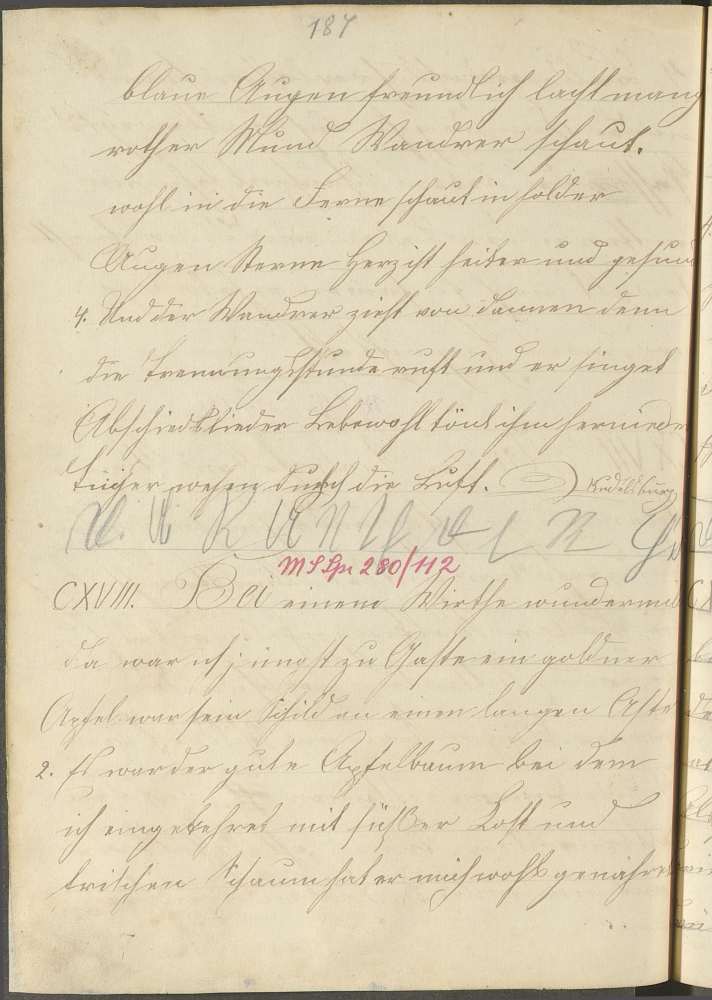 187
blaue Augen freundlich lacht manch
rother Mund Wandrer schaut.
wohl in die Ferne schaut in holder
Augen Sterne Herz ist heiter und gesund
4. Und der Wandrer zieht von dannen denn
die Trennungsstunde ruft und er singet
Abschiedslieder Lebewohl tönt ihm hernieder
Tücher wehen durch die Luft. Rudelsburg
MS Spr 280/112
CXVIII. Bei einem Wirthe wundermild
da war ich jüngst zu Gaste ein goldner
Apfel war sein Schild an einen langen Aste
2. Es war der gute Apfelbaum bei dem
ich eingekehret mit süßer Kost und
frischen Schaum hat er mich wohl genähret